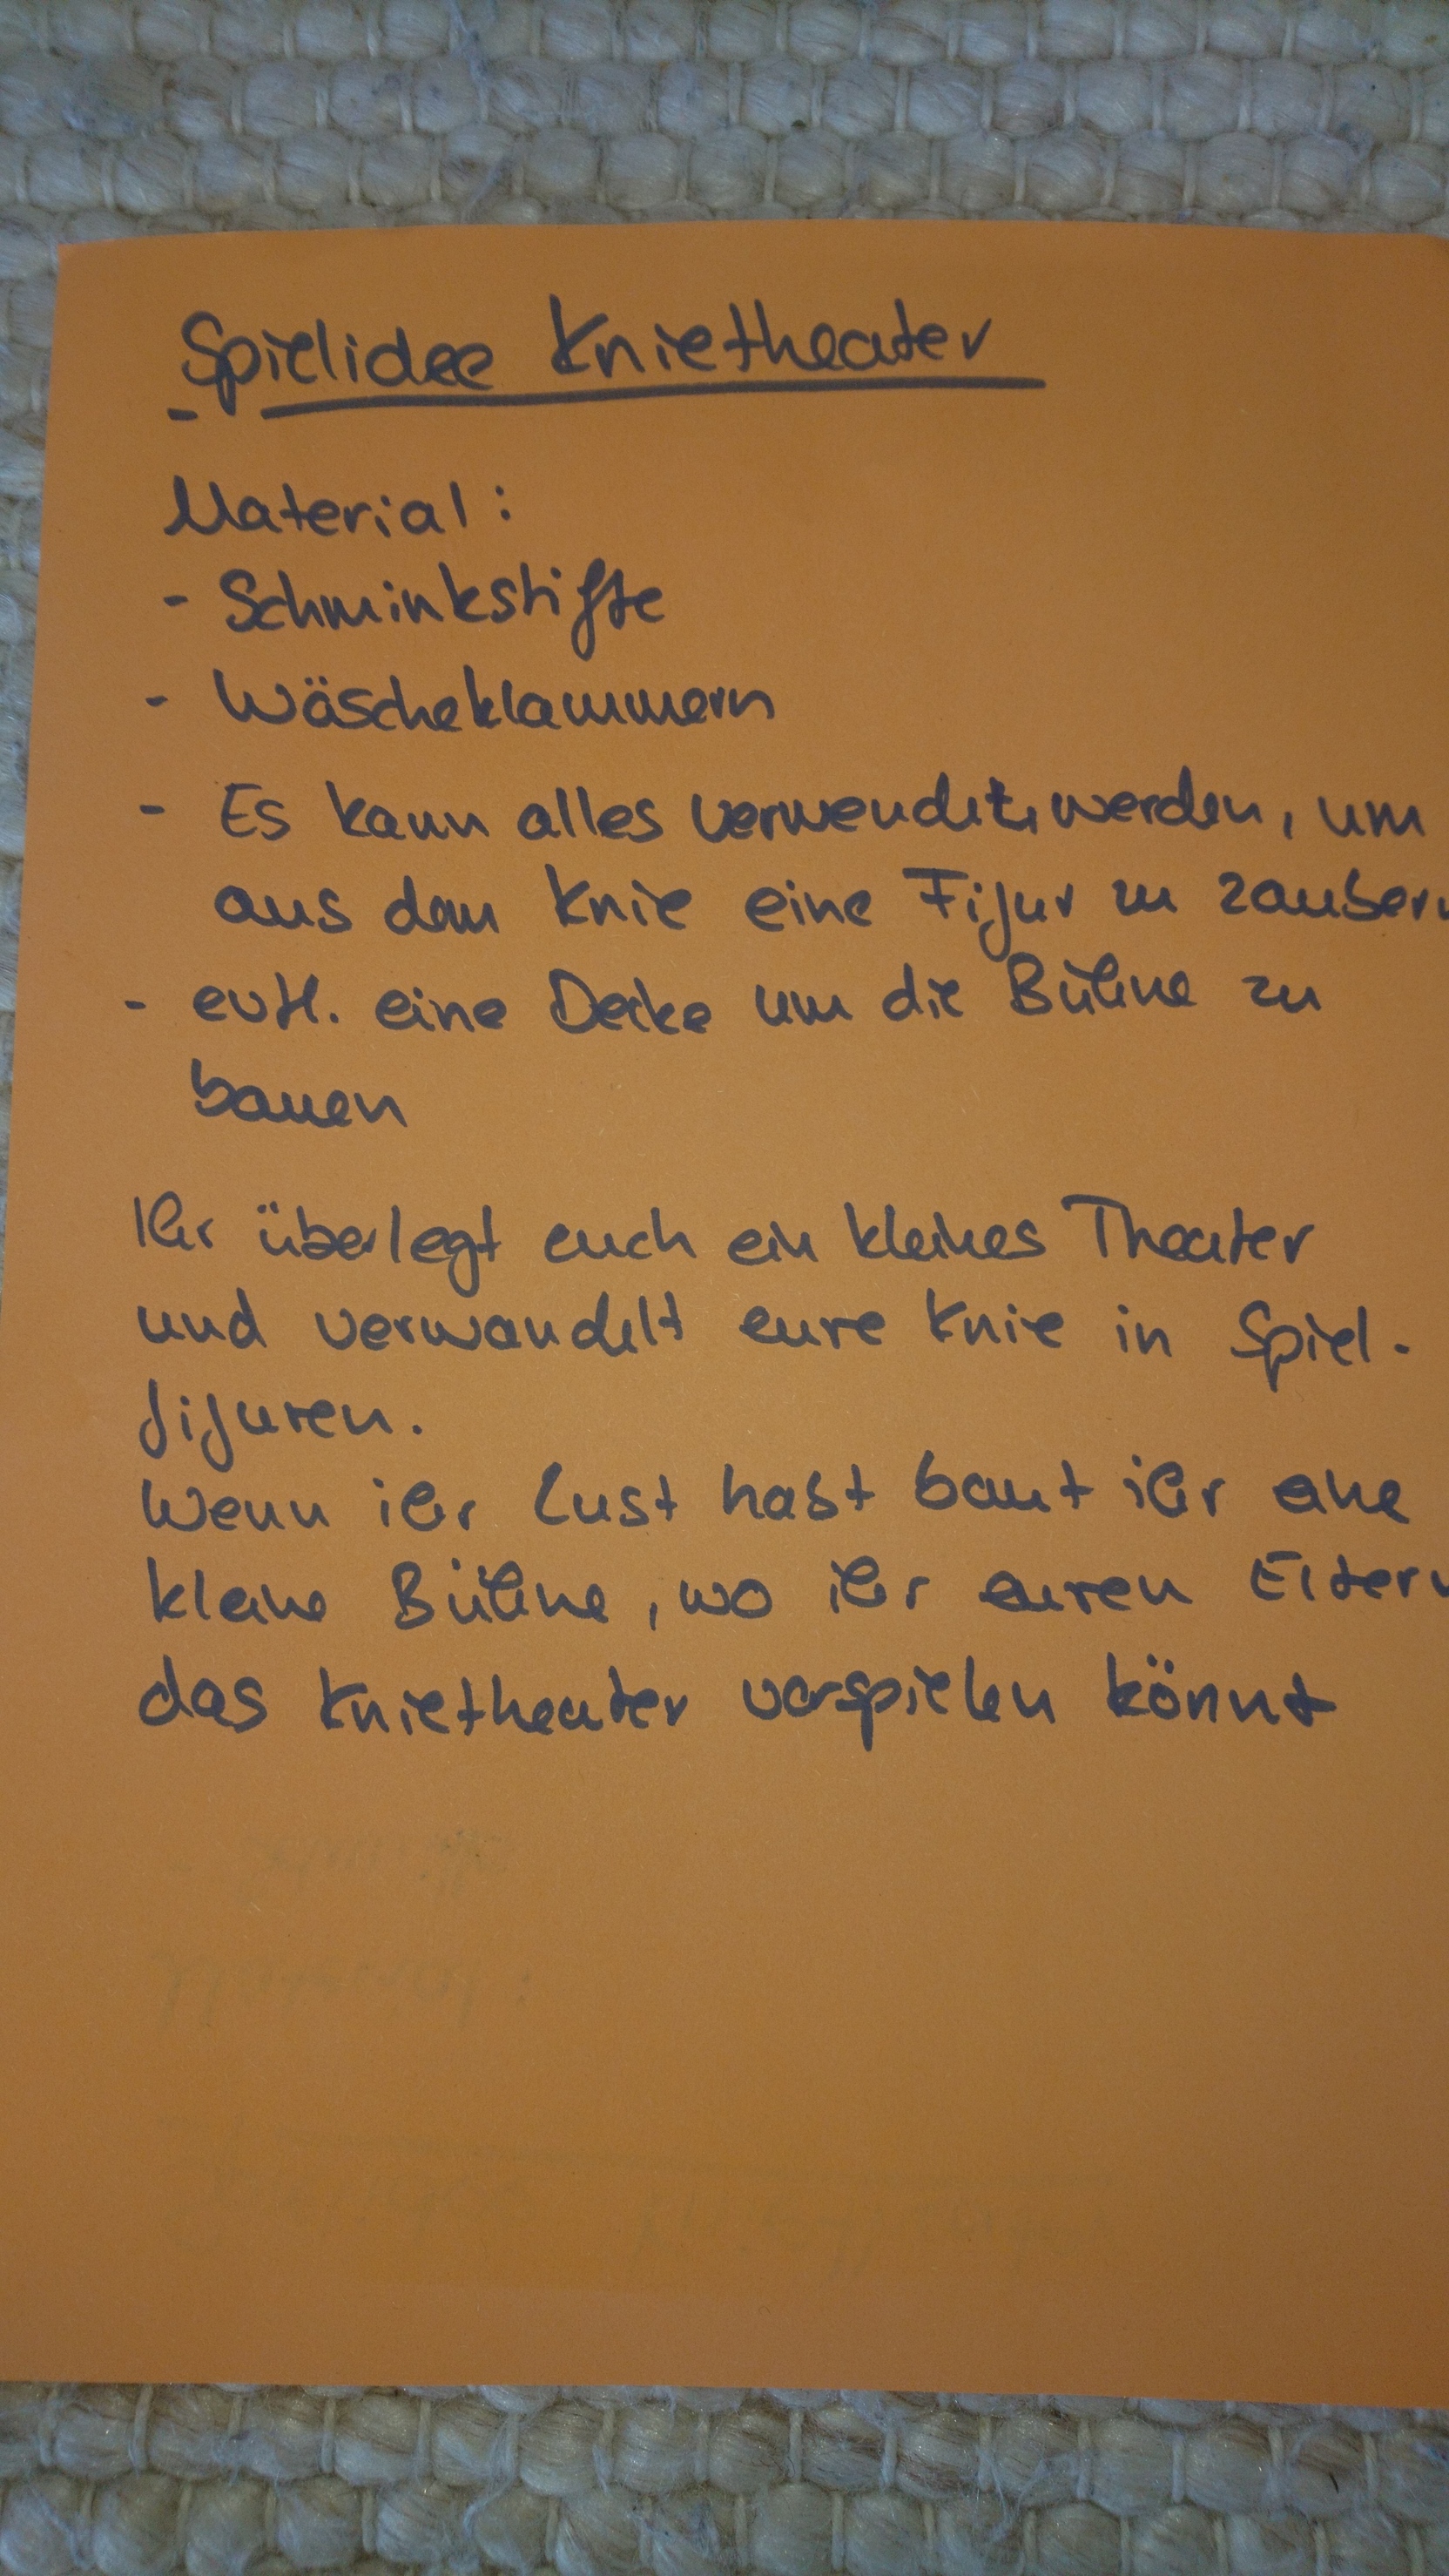 Spielidee Knietheater
Material:
- Schminkstifte
- Wäscheklammern
- Es kann alles verwendet werden, um
aus dem Knie eine Figur zu zaubern
- evtl. eine Decke um die Bühne zu
bauen
Ihr überlegt euch ein kleines Theater
und verwandelt eure Knie in Spiel-
figuren.
Wenn ihr Lust hast baut ihr eine
kleine Bühne, wo ihr euren Eltern
das Knietheater vorspielen könnt